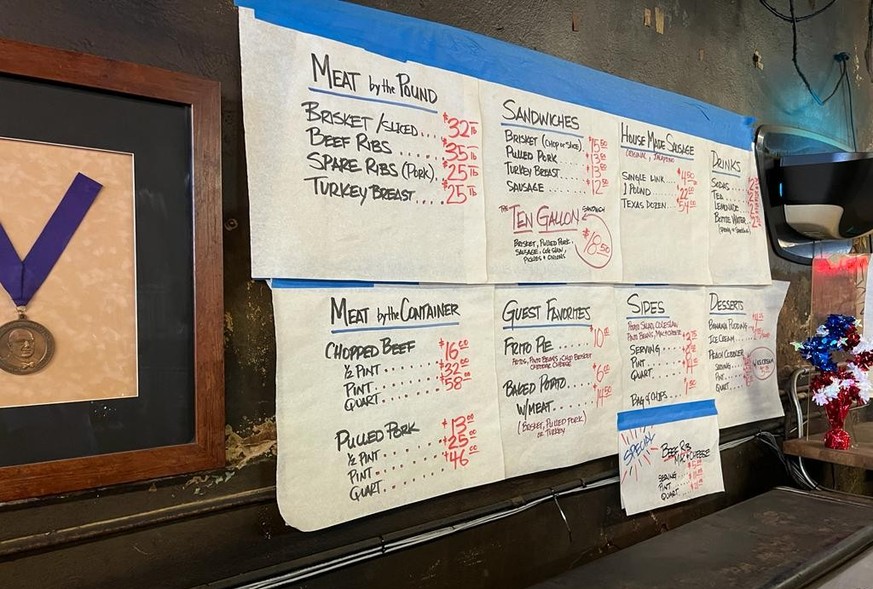 MEAT by the POUND
BRISKET/SLICED.... $32 lb
BEEF RIBS ..... $35 lb
SPARE RIBS (PORK). $25 lb
TURKEY BREAST..... $25 lb
SANDWICHES
BRISKET (CHOP or SLICED)
PULLED PORK
TURKEY BREAST
SAUSAGE $12.00
THE TEN GALLON SANDWICH
$18.50
BRISKET, PULLED PORK,
SAUSAGE, COLESLAW,
PICKLES & ONIONS
HOUSE MADE SAUSAGE
ORIGINAL, JALAPEÑO
SINGLE LINK $4.50
1 POUND $22.00
TEXAS DOZEN $54.00
DRINKS
SODAS
TEA
LEMONADE
BOTTLE WATER
MEAT by the CONTAINER
CHOPPED BEEF
½ PINT $16.00
PINT $32.00
QUART $58.00
PULLED PORK
½ PINT $13.00
PINT $25.00
QUART $46.00
GUEST FAVORITES
FRITO PIE $10.00
FRITOS, PINTO BEANS, CHOP BRISKET
CHEDDAR CHEESE
BAKED POTATO
W/MEAT $14.50
(BRISKET, PULLED PORK
or TURKEY)
SIDES
POTATO SALAD, COLESLAW
PINTO BEANS, MAC & CHEESE
SERVING
PINT
QUART
BAG of CHIPS
DESSERTS
BANANA PUDDING
ICE CREAM
PEACH COBBLER
SERVING
PINT
QUART
W/ICE CREAM
SPECIAL
BEEF RIB
MAC & CHEESE
SERVING
PINT
QUART